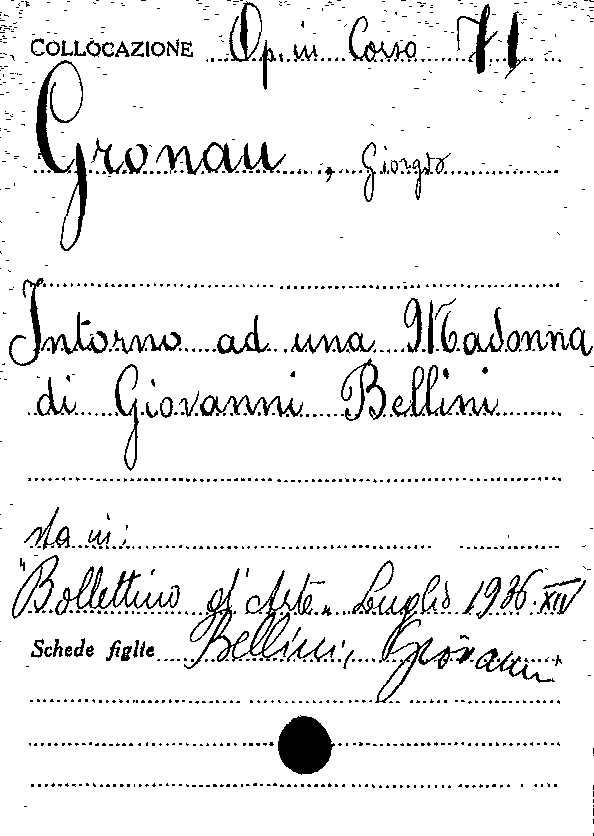 COLLOCAZIONE Op. in Corso 71
Gronau, Giorgio
Intorno ad una Madonna
di Giovanni Bellini
sta in:
"Bollettino d'Arte" Luglio 1936.XIV
Schede figlie Bellini, Giovanni